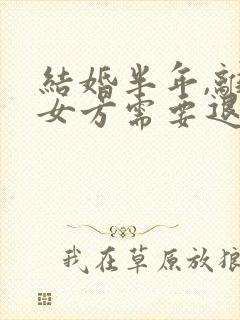 結婚半年,離
女方需要退
我在草原放狼